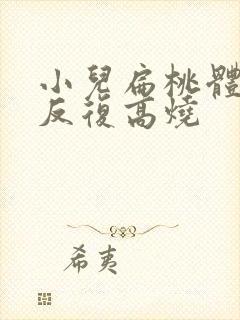 小兒扁桃體
反復高燒
希夷